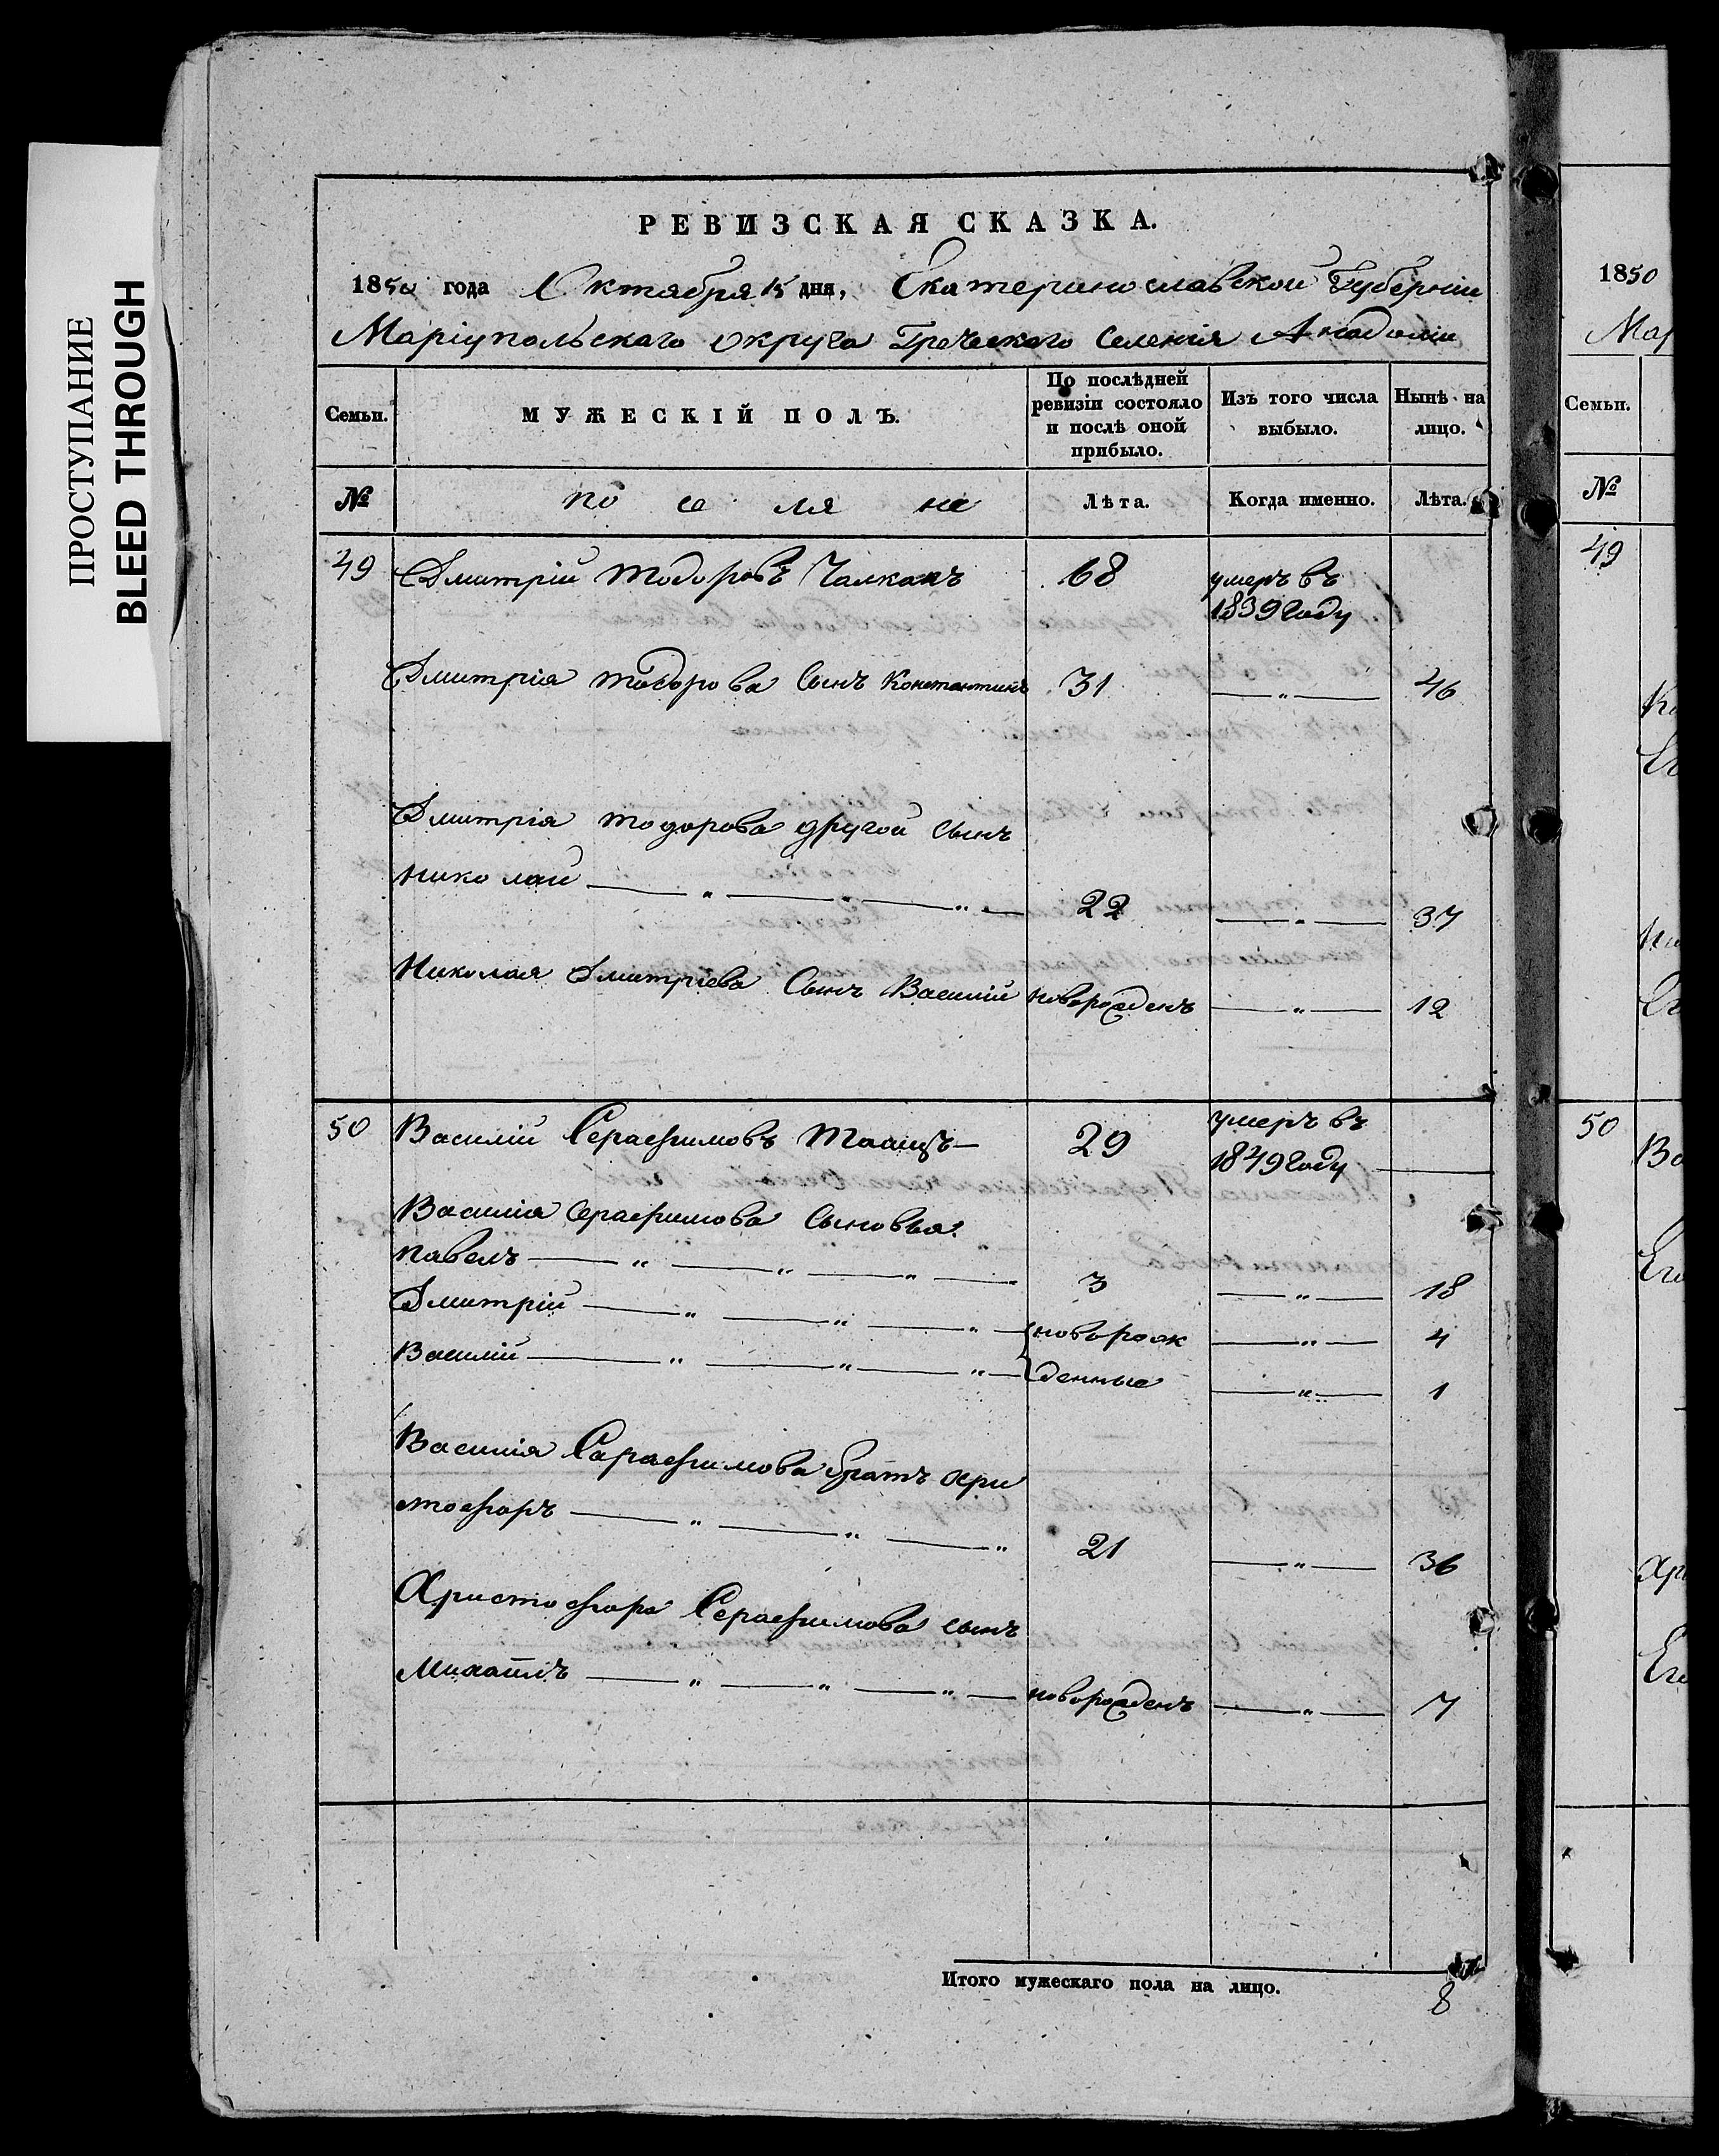 ПРОСТУПАНИЕ
BLEED THROUGH
РЕВИЗСКАЯ СКАЗКА.
1850 года Октября 15 дня, Екатеринославской Губерніи
Маріупольскаго округа Греческаго Селенія Анадоліи
Семьи. МУЖЕСКІЙ ПОЛЪ. По послѣдней ревизіи состояло и послѣ оной прибыло. Изъ того числа выбыло. Нынѣ на лицо.
№ поселяне Лѣта. Когда именно. Лѣта.
49 Дмитрій тодоровъ Чалканъ 68 умеръ въ
1839 году
Дмитрія тодорова Сынъ Константинъ 31 — „ — 46
Дмитрія тодорова другой Сынъ
Николай — „ — „ — „ — 22 — „ — 37
Николая Дмитріева Сынъ Василій новорожденъ — „ — 12
50 Василій Серафимовъ — 29 умеръ въ
1849 году —
Василія Серафимова Сыновья:
Павелъ — „ — „ — „ — 3 — „ — 18
Дмитрій — „ — „ — „ — новорож — „ — 4
Василій — „ — „ — „ — денные — „ — 1
Василія Сарафимова братъ Хри
стофоръ — „ — „ — „ 21 — „ — 36
Христофора Серафимова сынъ
Михаилъ — „ — „ — „ — новорожденъ — „ — 7
Итого мужескаго пола на лицо. 8
1850
Мар
Семьи.
№
49
50
Ва
Хри